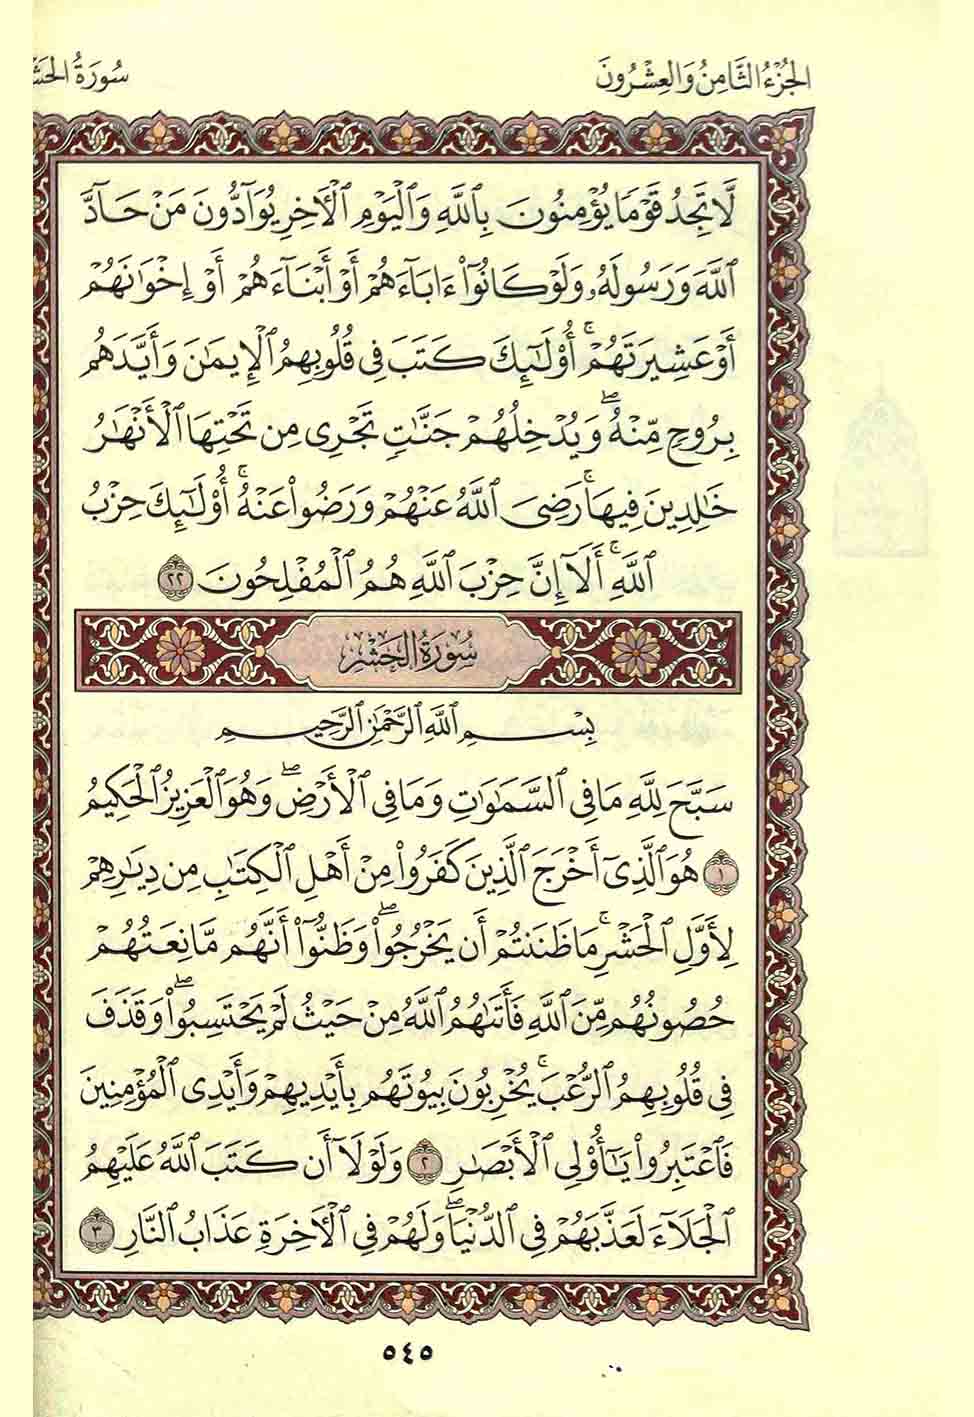 الجُزْءُ الثَّامِنُ وَالعِشْرُونَ
سُورَةُ الحَشْ
لَّا تَجِدُ قَوْمًا يُؤْمِنُونَ بِٱللَّهِ وَٱلْيَوْمِ ٱلْأَخِرِ يُوَآدُّونَ مَنْ حَآدَّ
ٱللَّهَ وَرَسُولَهُۥ وَلَوْ كَانُوٓا۟ ءَابَآءَهُمْ أَوْ أَبْنَآءَهُمْ أَوْ إِخْوَٰنَهُمْ
أَوْ عَشِيرَتَهُمْ ۚ أُو۟لَٰٓئِكَ كَتَبَ فِى قُلُوبِهِمُ ٱلْإِيمَٰنَ وَأَيَّدَهُم
بِرُوحٍ مِّنْهُ ۖ وَيُدْخِلُهُمْ جَنَّٰتٍ تَجْرِى مِن تَحْتِهَا ٱلْأَنْهَٰرُ
خَٰلِدِينَ فِيهَا ۚ رَضِىَ ٱللَّهُ عَنْهُمْ وَرَضُوا۟ عَنْهُ ۚ أُو۟لَٰٓئِكَ حِزْبُ
ٱللَّهِ ۚ أَلَآ إِنَّ حِزْبَ ٱللَّهِ هُمُ ٱلْمُفْلِحُونَ ٢٢
سُورَةُ الحَشْرِ
بِسْمِ ٱللَّهِ ٱلرَّحْمَٰنِ ٱلرَّحِيمِ
سَبَّحَ لِلَّهِ مَا فِى ٱلسَّمَٰوَٰتِ وَمَا فِى ٱلْأَرْضِ ۖ وَهُوَ ٱلْعَزِيزُ ٱلْحَكِيمُ
١ هُوَ ٱلَّذِىٓ أَخْرَجَ ٱلَّذِينَ كَفَرُوا۟ مِنْ أَهْلِ ٱلْكِتَٰبِ مِن دِيَٰرِهِمْ
لِأَوَّلِ ٱلْحَشْرِ ۚ مَا ظَنَنتُمْ أَن يَخْرُجُوا۟ ۖ وَظَنُّوٓا۟ أَنَّهُم مَّانِعَتُهُمْ
حُصُونُهُم مِّنَ ٱللَّهِ فَأَتَىٰهُمُ ٱللَّهُ مِنْ حَيْثُ لَمْ يَحْتَسِبُوا۟ ۖ وَقَذَفَ
فِى قُلُوبِهِمُ ٱلرُّعْبَ ۚ يُخْرِبُونَ بُيُوتَهُم بِأَيْدِيهِمْ وَأَيْدِى ٱلْمُؤْمِنِينَ
فَٱعْتَبِرُوا۟ يَٰٓأُو۟لِى ٱلْأَبْصَٰرِ ٢ وَلَوْلَآ أَن كَتَبَ ٱللَّهُ عَلَيْهِمُ
ٱلْجَلَآءَ لَعَذَّبَهُمْ فِى ٱلدُّنْيَا ۖ وَلَهُمْ فِى ٱلْأَخِرَةِ عَذَابُ ٱلنَّارِ ٣
٥٤٥